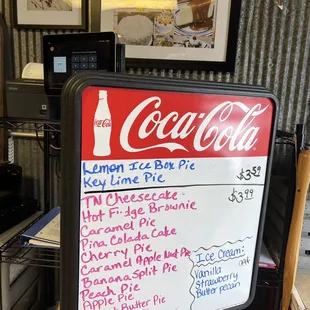 Coca-Cola
Coca-Cola
Lemon Ice Box Pie
Key Lime Pie $3.50
TN Cheesecake $3.99
Hot Fudge Brownie
Caramel Pie
Pina Colada Cake
Cherry Pie
Caramel Apple Nut Pie
Banana Split Pie
Peach Pie
Apple Pie
Butter Pie
Ice Cream:
Vanilla
Strawberry
Butter pecan